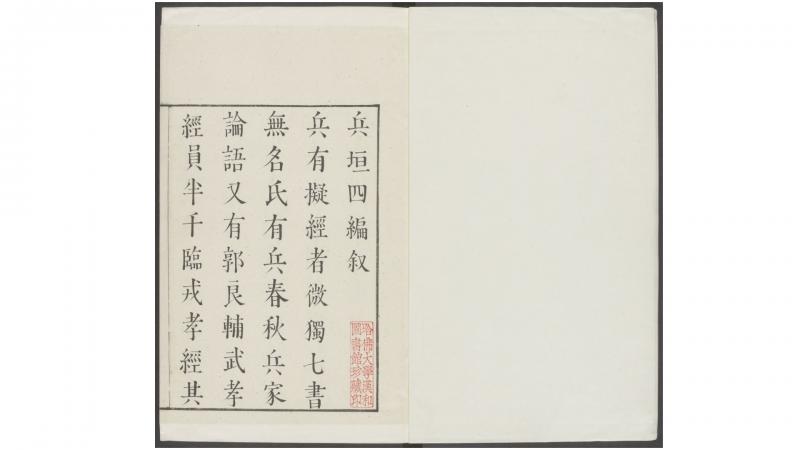 兵垣四編叙
兵有擬經者微獨七書
無名氏有兵春秋兵家
論語又有郭良輔武孝
經員半千臨戎孝經其
哈佛大學漢和
圖書館珍藏印